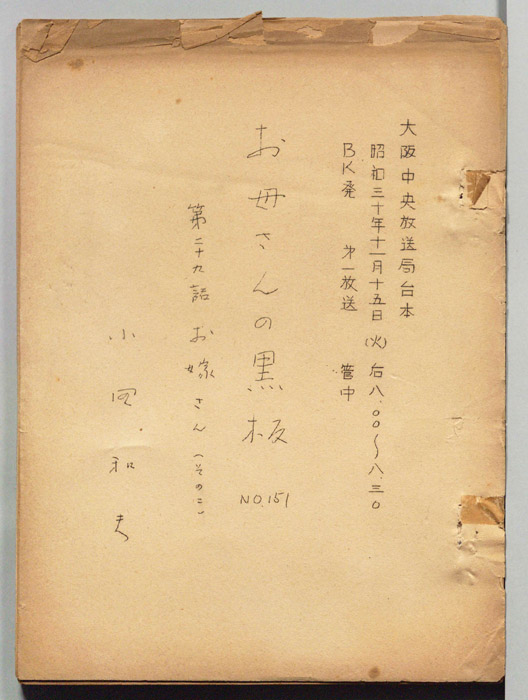 大阪中央放送局台本
昭和三十年十一月十五日(火)后八.〇〇〜八.三〇
BK発 才一放送 管中
お母さんの黒板 NO.151
第二十九話 お嫁さん(その二)
小 和夫